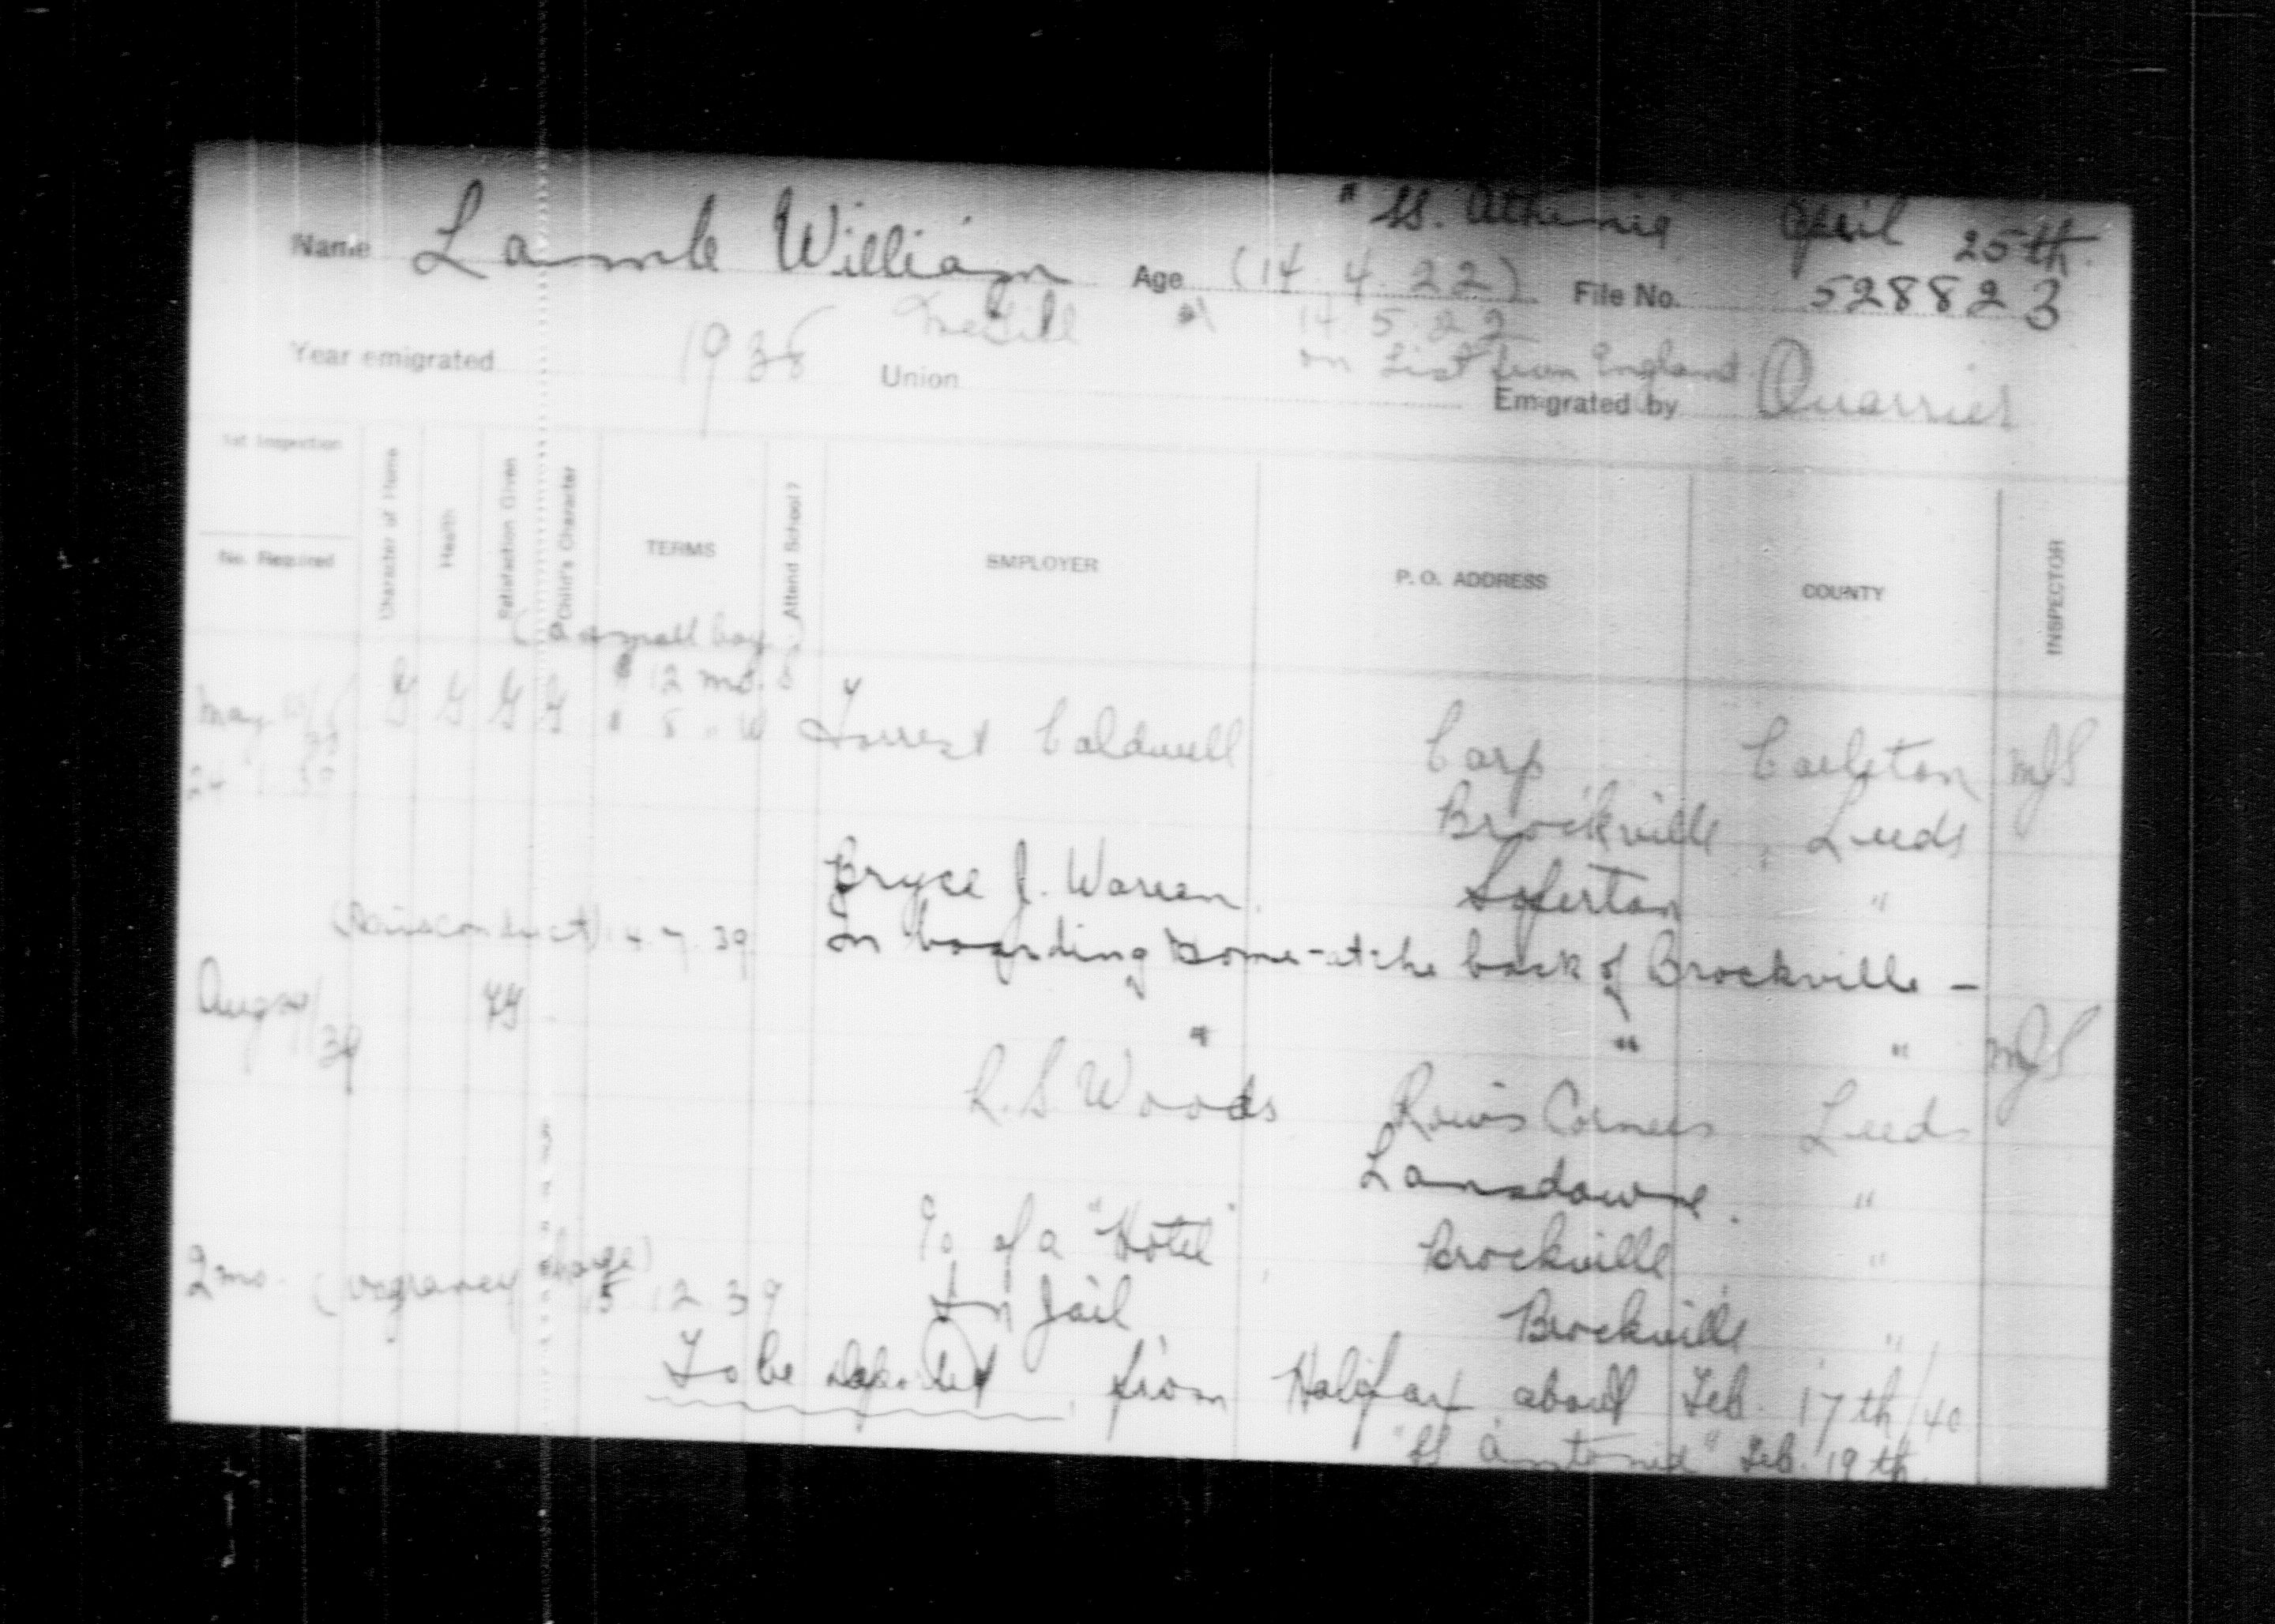 "SS. Athenia" April 25th.
Name Lamb William Age (14. 4. 22) File No. 528823
14. 5. 22
on List from England
Year emigrated 1938 Union Emigrated by Quarrier
1st Inspection
No. Required
Character of Home
Health
Satisfaction Given
Child's Character
TERMS
Attend School?
EMPLOYER
P. O. ADDRESS
COUNTY
INSPECTOR
(a small boy)
" 12 mo.
May G G G G " 8 " Forrest Caldwell Carp Carleton MJS
Brockville, Leeds
Bryce J. Warren. Soperton "
(Misconduct) 14. 7. 39 In boarding home - at the back of Brockville -
Aug 39 VG " " " MJS
R. S Woods Row's Corners Leeds
Lansdowne. "
c/o of a "Hotel", Brockville, "
2 mo. (vagrancy charge) 15 12 39 In Jail Brockville "
To be deported, from Halifax about Feb. 17th/40
"SS Antonia" Feb. 19th.